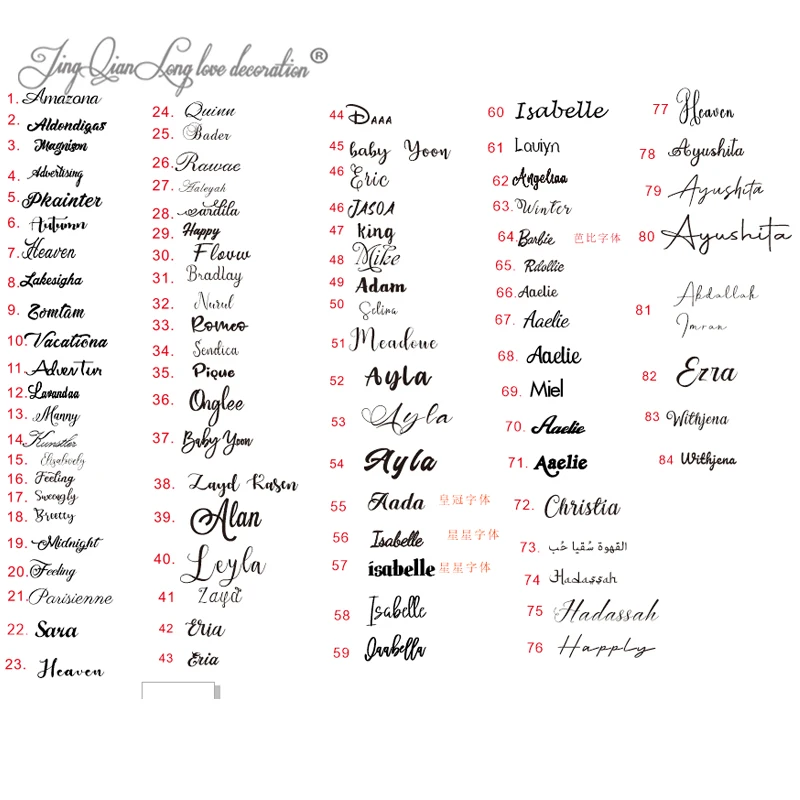 JingQianLong love decoration®
1. Amazona
2. Aldondigas
3. Magnison
4. Advertising
5. Pkainter
6. Autumn
7. Heaven
8. Lakesigha
9. Zomtam
10. Vacationa
11. Adventur
12. Lavandaa
13. Manny
14. Kunstler
15. Elizabeety
16. Feeling
17. Sweengly
18. Breetty
19. Midnight
20. Feeling
21. Parisienne
22. Sara
23. Heaven
24. Quinn
25. Bader
26. Rawae
27. Aaleyah
28. Sardila
29. Happy
30. Flouw
31. Bradlay
32. Nurul
33. Romeo
34. Sendica
35. Pique
36. Onglee
37. Baby Yoon
38. Zayd Rasen
39. Alan
40. Leyla
41 Zayd
42 Eria
43 Eria
44 Daaa
45 baby Yoon
46 Eric
46 JASOA
47 king
48 Mike
49 Adam
50 Selina
51 Meadoue
52 Ayla
53 Ayla
54 Ayla
55 Aada 皇冠字体
56 Isabelle 星星字体
57 isabelle 星星字体
58 Isabelle
59 Isabella
60 Isabelle
61 Lauiyn
62 Angeliaa
63. Winter
64. Barbie 芭比字体
65. Rdollie
66. Aaelie
67. Aaelie
68. Aaelie
69. Miel
70. Aaelie
71. Aaelie
72. Christia
73. القهوة سُقيا حُب
74 Hadassah
75 Hadassah
76 Happly
77 Heaven
78 Ayushita
79 Ayushita
80 Ayushita
81 Abdallah
Imran
82 Ezra
83 Withjena
84 Withjena